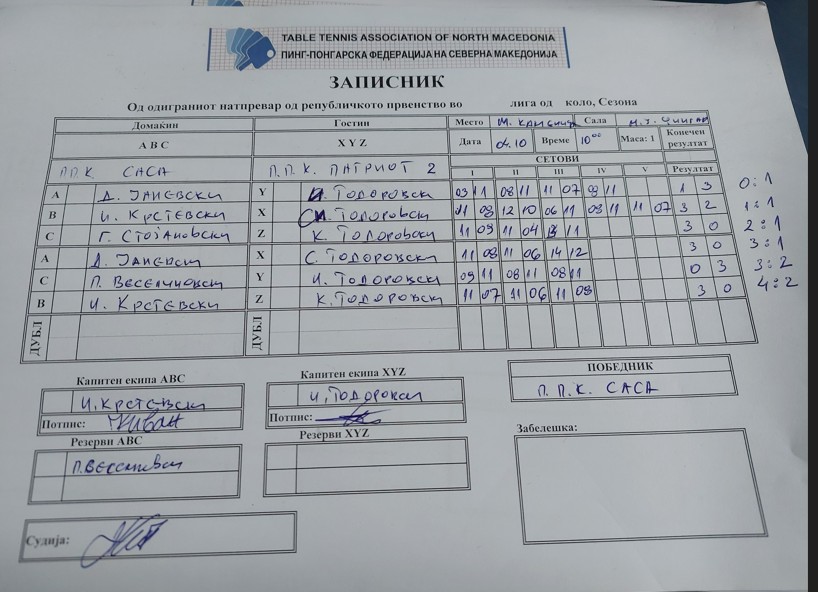 TABLE TENNIS ASSOCIATION OF NORTH MACEDONIA
ПИНГ-ПОНГАРСКА ФЕДЕРАЦИЈА НА СЕВЕРНА МАКЕДОНИЈА
ЗАПИСНИК
Од одиграниот натпревар од републичкото првенство во лига од коло, Сезона
Домаќин Гостин Место М. Каменица Сала
A B C X Y Z Дата 04.10 Време 10⁰⁰ Маса: 1 Конечен резултат
П.П.К. САСА П.П.К. ПАТРИОТ 2 СЕТОВИ
I II III IV V Резултат
A Д. ЈАНЕВСКИ Y И. ТОДОРОВСКИ 03 11 08 11 11 07 09 11 1 3 0:1
B И. КРСТЕВСКИ X С. ТОДОРОВСКИ 11 08 12 10 06 11 08 11 11 07 3 2 1:1
C Г. СТОЈАНОВСКИ Z К. ТОДОРОВСКИ 11 09 11 04 13 11 3 0 2:1
A Д. ЈАНЕВСКИ X С. ТОДОРОВСКИ 11 08 11 06 14 12 3 0 3:1
C П. ВЕСЕЛИНОВСКИ Y И. ТОДОРОВСКИ 09 11 08 11 08 11 0 3 3:2
B И. КРСТЕВСКИ Z К. ТОДОРОВСКИ 11 07 11 06 11 09 3 0 4:2
ДУБЛ ДУБЛ
Капитен екипа ABC Капитен екипа XYZ ПОБЕДНИК
И. КРСТЕВСКИ И. ТОДОРОВСКИ П.П.К. САСА
Потпис: Потпис:
Резерви ABC Резерви XYZ Забелешка:
Судија: